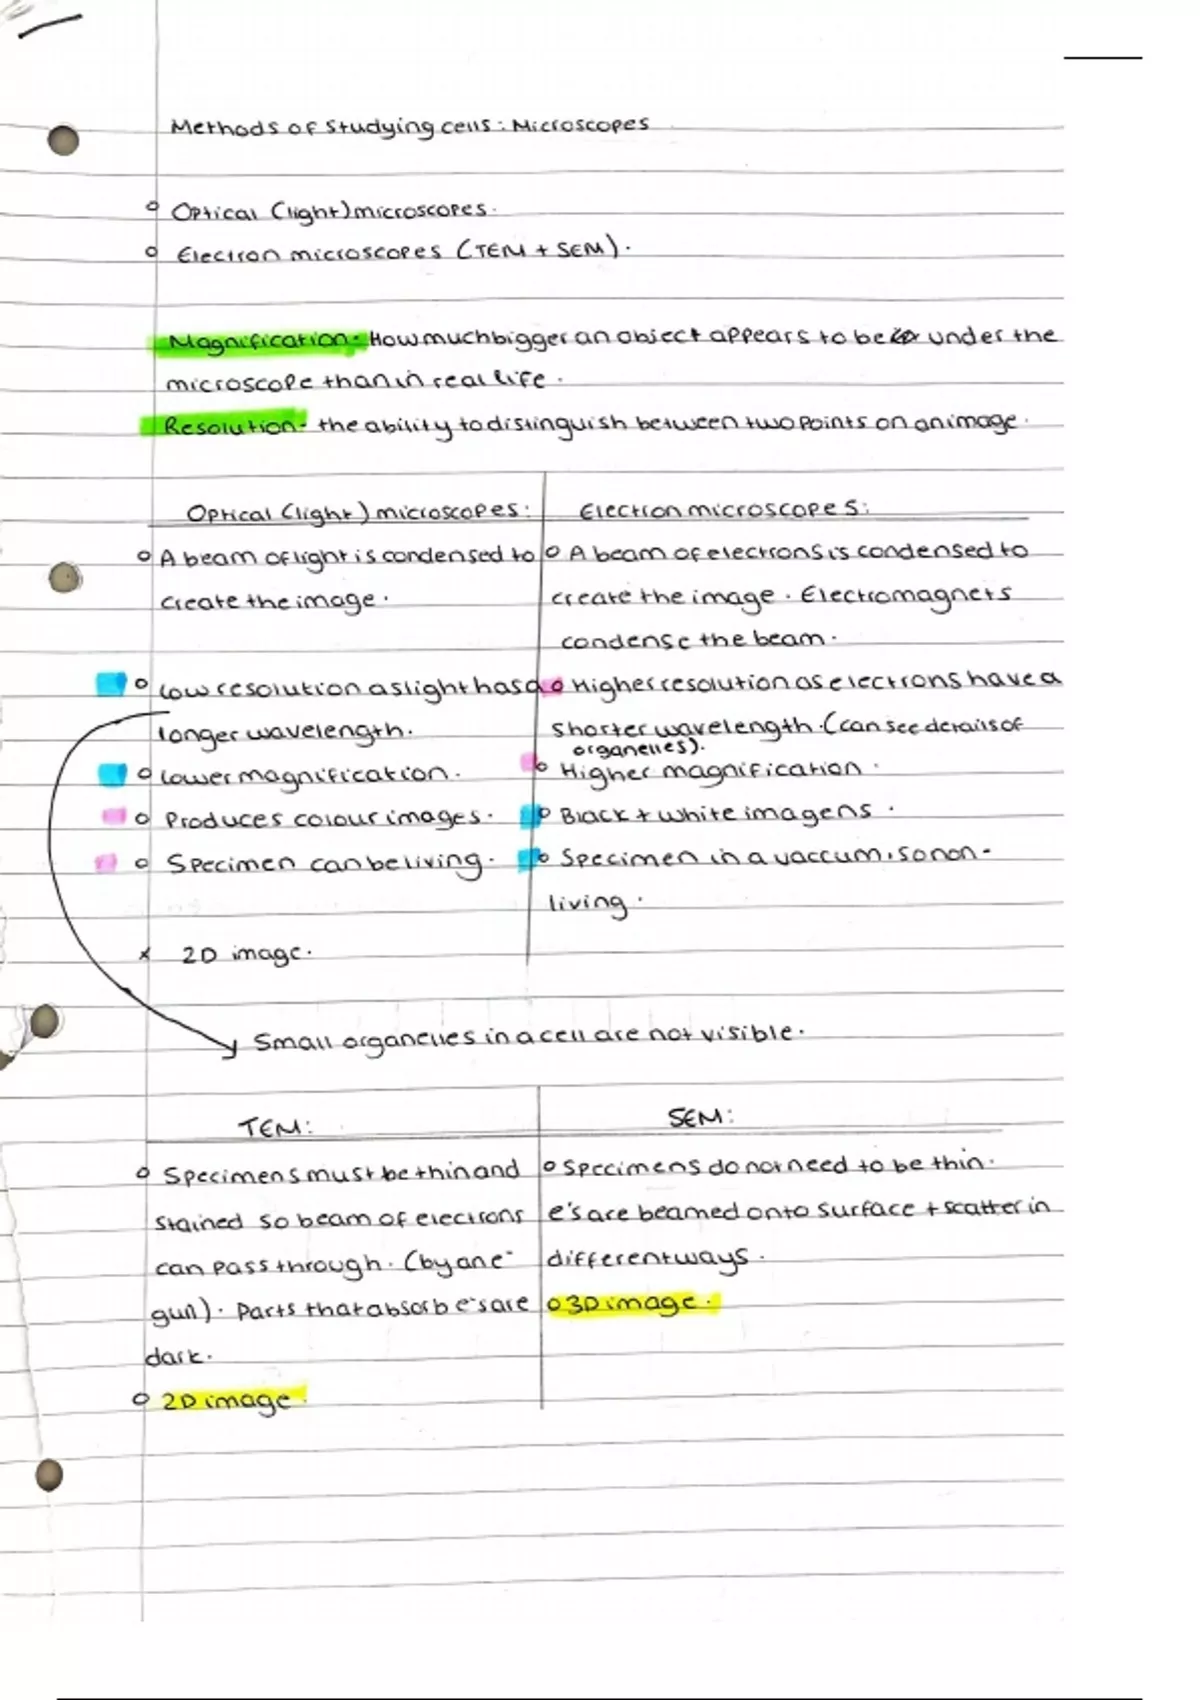 Methods of Studying cells: Microscopes
Optical (light) microscopes.
Electron microscopes (TEM + SEM).
Magnification- How much bigger an object appears to be under the
microscope than in real life.
Resolution- the ability to distinguish between two points on an image.
Optical (light) microscopes:
A beam of light is condensed to
create the image.
Low resolution as light has a
longer wavelength.
Lower magnification.
Produces colour images.
Specimen can be living.
x 2D image.
Electron microscopes:
A beam of electrons is condensed to
create the image. Electromagnets
condense the beam.
Higher resolution as electrons have a
shorter wavelength. (can see details of
organelles).
Higher magnification.
Black + white imagens.
Specimen in a vaccum, so non-
living.
Small organelles in a cell are not visible.
TEM:
Specimens must be thin and
stained so beam of electrons
can pass through. (by an e-
gun). Parts that absorb e-s are
dark.
2D image.
SEM:
Specimens do not need to be thin.
e's are beamed onto surface + scatter in
different ways.
3D image.